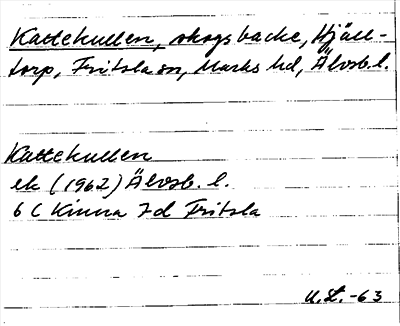 Kattekullen, skogsbacke, Hjäll-
torp, Fritsla sn, Marks hd, Älvsb. l.
Kattekullen
ek (1962) Älvsb. l.
6 C Kinna 7d Fritsla
U.L.-63